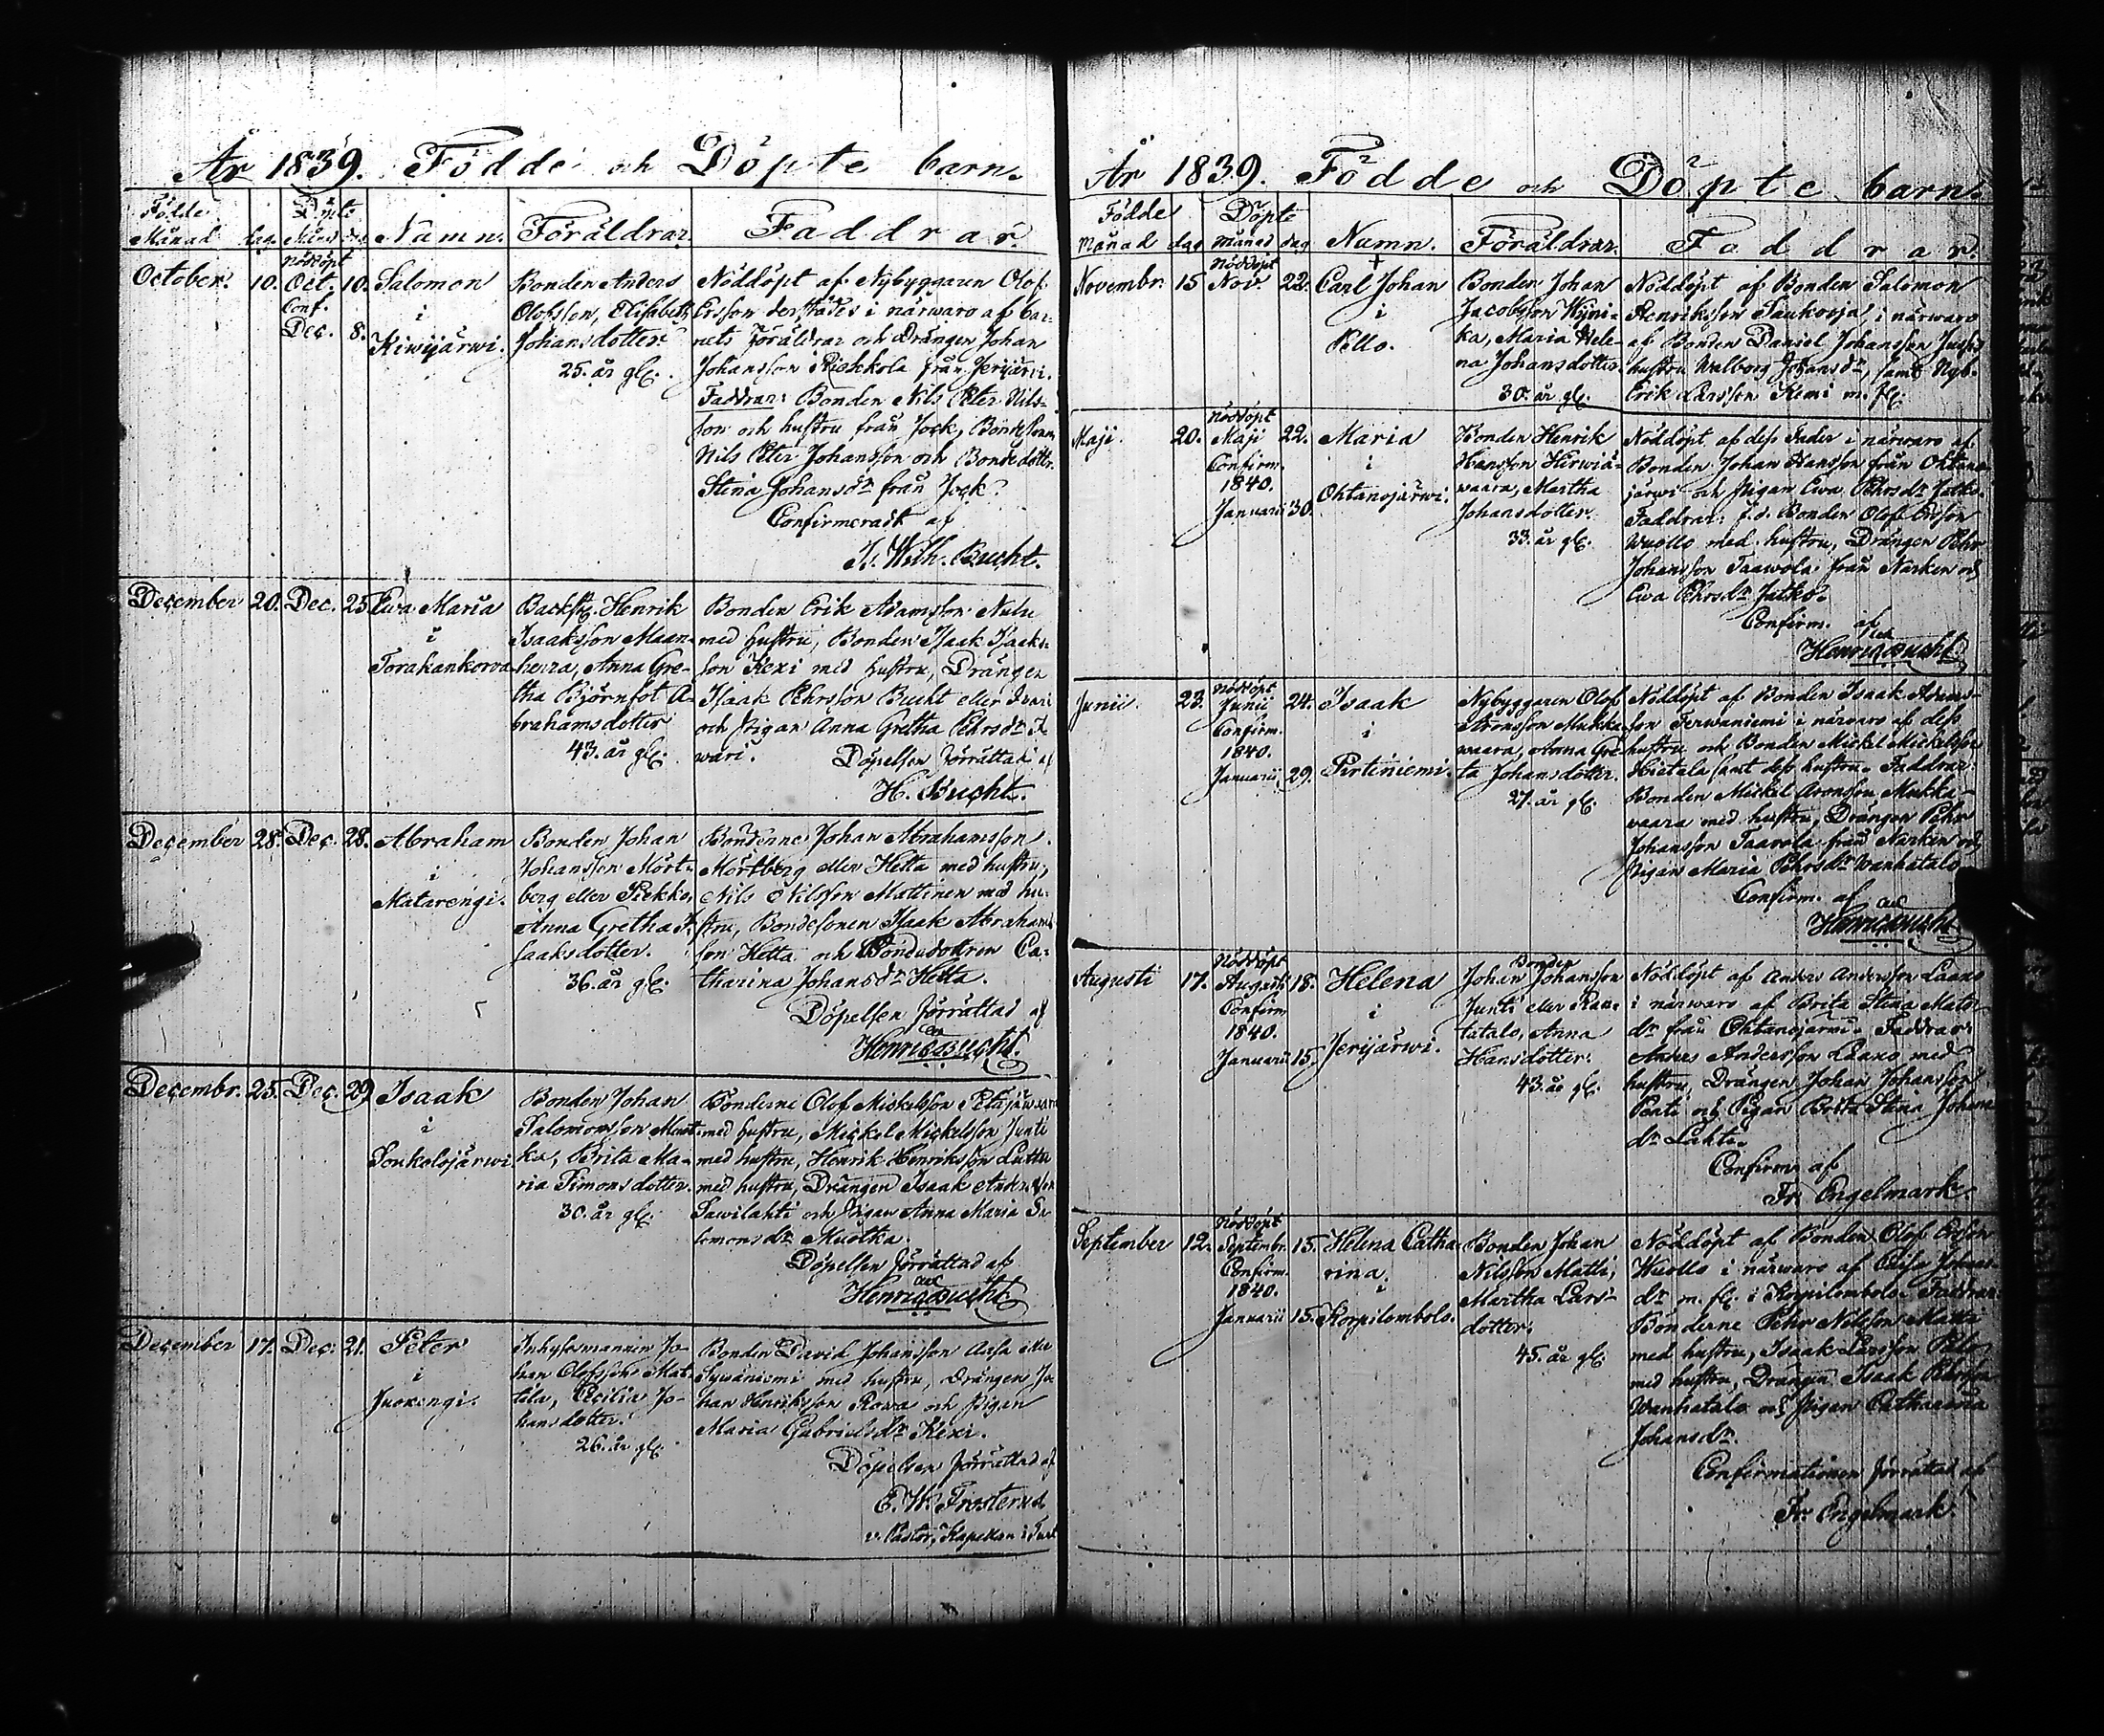 År 1839. Födde och Döpte barn.
Födde Månad dag. Döpte Namn. Föräldrar. Faddrar.
October. 10. Nöddöpt Oct. 10. Conf. Dec. 8.
Salomon
i
Kiwijärwi.
Bonden Anders
Olofsson, Elisabeth
Johansdotter
25. år gl.
Nöddöpt af Nybyggaren Olof
Ersson derstädes i närwaro af bar-
nets föräldrar och Drängen Johan
Johansson Riskkola från Jerijärwi.
Faddrar: Bonden Nils Peter Nils-
son och hustru från Jock, Bondesonen
Nils Peter Johansson och Bondedottr.
Stina Johansdr från Jock.
Confirmeradt af
J. Wilh. Bucht.
December 20. Dec. 25.
Ewa Maria
i
Torakankorva
Backst. Henrik
Isaaksson Maan-
herra, Anna Gre-
tha Björnfot A-
brahamsdotter
43. år gl.
Bonden Erik Adamsson Nulu
med hustru, Bonden Isaak Isaaks-
son Kexi med hustru, Drängen
Isaak Pehrsson Bucht eller Iwari
och Pigan Anna Gretha Pehrsdr I-
wari. Döpelsen förrättad af
H. Bucht.
December 28. Dec. 28.
Abraham
i
Matarengi.
Bonden Johan
Johansson Mört-
berg eller Piekko,
Anna Gretha I-
saaksdotter.
36. år gl.
Bönderne Johan Abrahamsson
Mörtberg eller Hetta med hustru,
Nils Nilsson Mattinen med hu-
stru, Bondesonen Isaak Abrahams
son Hetta och Bondedottren Ca-
tharina Johansdr Hetta.
Döpelsen förrättad af
Henric Bucht.
Decembr. 25. Dec. 29.
Isaak
i
Soukolojärwi
Bonden Johan
Salomonsson Muot-
ka, Brita Ma-
ria Simonsdotter.
30. år gl.
Bönderne Olof Mickelsson Petäjäwaara
med hustru, Mickel Mickelsson Junti
med hustru, Henrik Henriksson Lutta
med hustru, Drängen Isaak Andersson
Sawilahti och Pigan Anna Maria Sa-
lomonsdr Muotka.
Döpelsen förrättad af
Henric Bucht
December 17. Dec. 21.
Peter
i
Juoxengi.
Inhysesmannen Jo-
han Olofsson Mat-
tila, Cecilia Jo-
hansdotter.
26. år gl.
Bonden David Johansson Aasa eller
Sywäniemi med hustru, Drängen Jo
han Henriksson Rowa och Pigan
Maria Gabrielsdr Kexi.
Döpelsen förrättad af
E. W. Frosterud
v. Pastor, Kapellan i
År 1839. Födde och Döpte barn.
Födde månad dag Döpte månad dag Namn. Föräldrar. Faddrar.
Novembr. 15 Nöddöpt Nov. 22.
Carl Johan
i
Pello.
Bonden Johan
Jacobsson Wyni-
ka, Maria Hele-
na Johansdotter
30. år gl.
Nöddöpt af Bonden Salomon
Henriksson Saukorja, i närwaro
af Bonden Daniel Johansson
hustru Walborg Johansdr, samt Nyb.
Erik Larsson Kemi m. fl.
Maji. 20. Nöddöpt Maji 22. Confirm. 1840. Januarii 30.
Maria
i
Ohtanajärwi.
Bonden Henrik
Hansson Hirwiä-
waara, Martha
Johansdotter
33. år gl.
Nöddöpt af dess Fader i närwaro af
Bonden Johan Hansson från Ohtana-
järwi och Pigan Ewa Pehrsdr Jatko.
Faddrar: f.d. Bonden Olof Ersson
Wuollo med hustru, Drängen Pehr
Johansson Taawola från Narken och
Ewa Pehrsdr Jatko.
Confirm. af
Henric Bucht
Junii. 23. Nöddöpt Junii 24. Confirm. 1840. Januarii 29.
Isaak
i
Pirtiniemi.
Nybyggaren Olof
Aronsson Mukka-
waara, Anna Gre-
ta Johansdotter.
27. år gl.
Nöddöpt af Bonden Isaak Adams-
son Ferwaniemi i närwaro af dess
hustru och Bonden Mickel Mickelsson
Hietala samt dess hustru. Faddrar:
Bonden Mickel Aronsson Mukka-
waara med hustru, Drängen Pehr
Johansson Taavola från Narken och
Pigan Maria Pehrsdr Wanhatalo
Confirm. af
Henric Bucht
Augusti 17. Nöddöpt Augusti 18. Confirm 1840. Januarii 15.
Helena
i
Jerijärwi.
Bonden
Johan Johansson
Junti eller Ran-
tatalo, Anna
Hansdotter.
43. år gl.
Nöddöpt af Anders Andersson Laaxo
i närwaro af Brita Stina Mats-
dr från Ohtanajärwi. Faddrar:
Anders Andersson Laaxo med
hustru, Drängen Johan Johansson
Penti och Pigan Brita Stina Johans
dr Lahti.
Confirm. af
Fr. Engelmark.
September 12. Nöddöpt Septembr. 15. Confirm. 1840. Januarii 15.
Helena Catha-
rina.
i
Korpilombolo.
Bonden Johan
Nilsson Matti,
Martha Lars-
dotter.
45. år gl.
Nöddöpt af Bonden Olof Ersson
Wuollo i närwaro af Johans-
dr m. fl. i Korpilombolo. Faddrar:
Bönderne Pehr Nilsson Matti
med hustru, Isaak Larsson Palo
med hustru, Drängen Isaak Pehrsson
Wanhatalo och Pigan Catharina
Johansdr.
Confirmationen förrättad af
Fr. Engelmark.